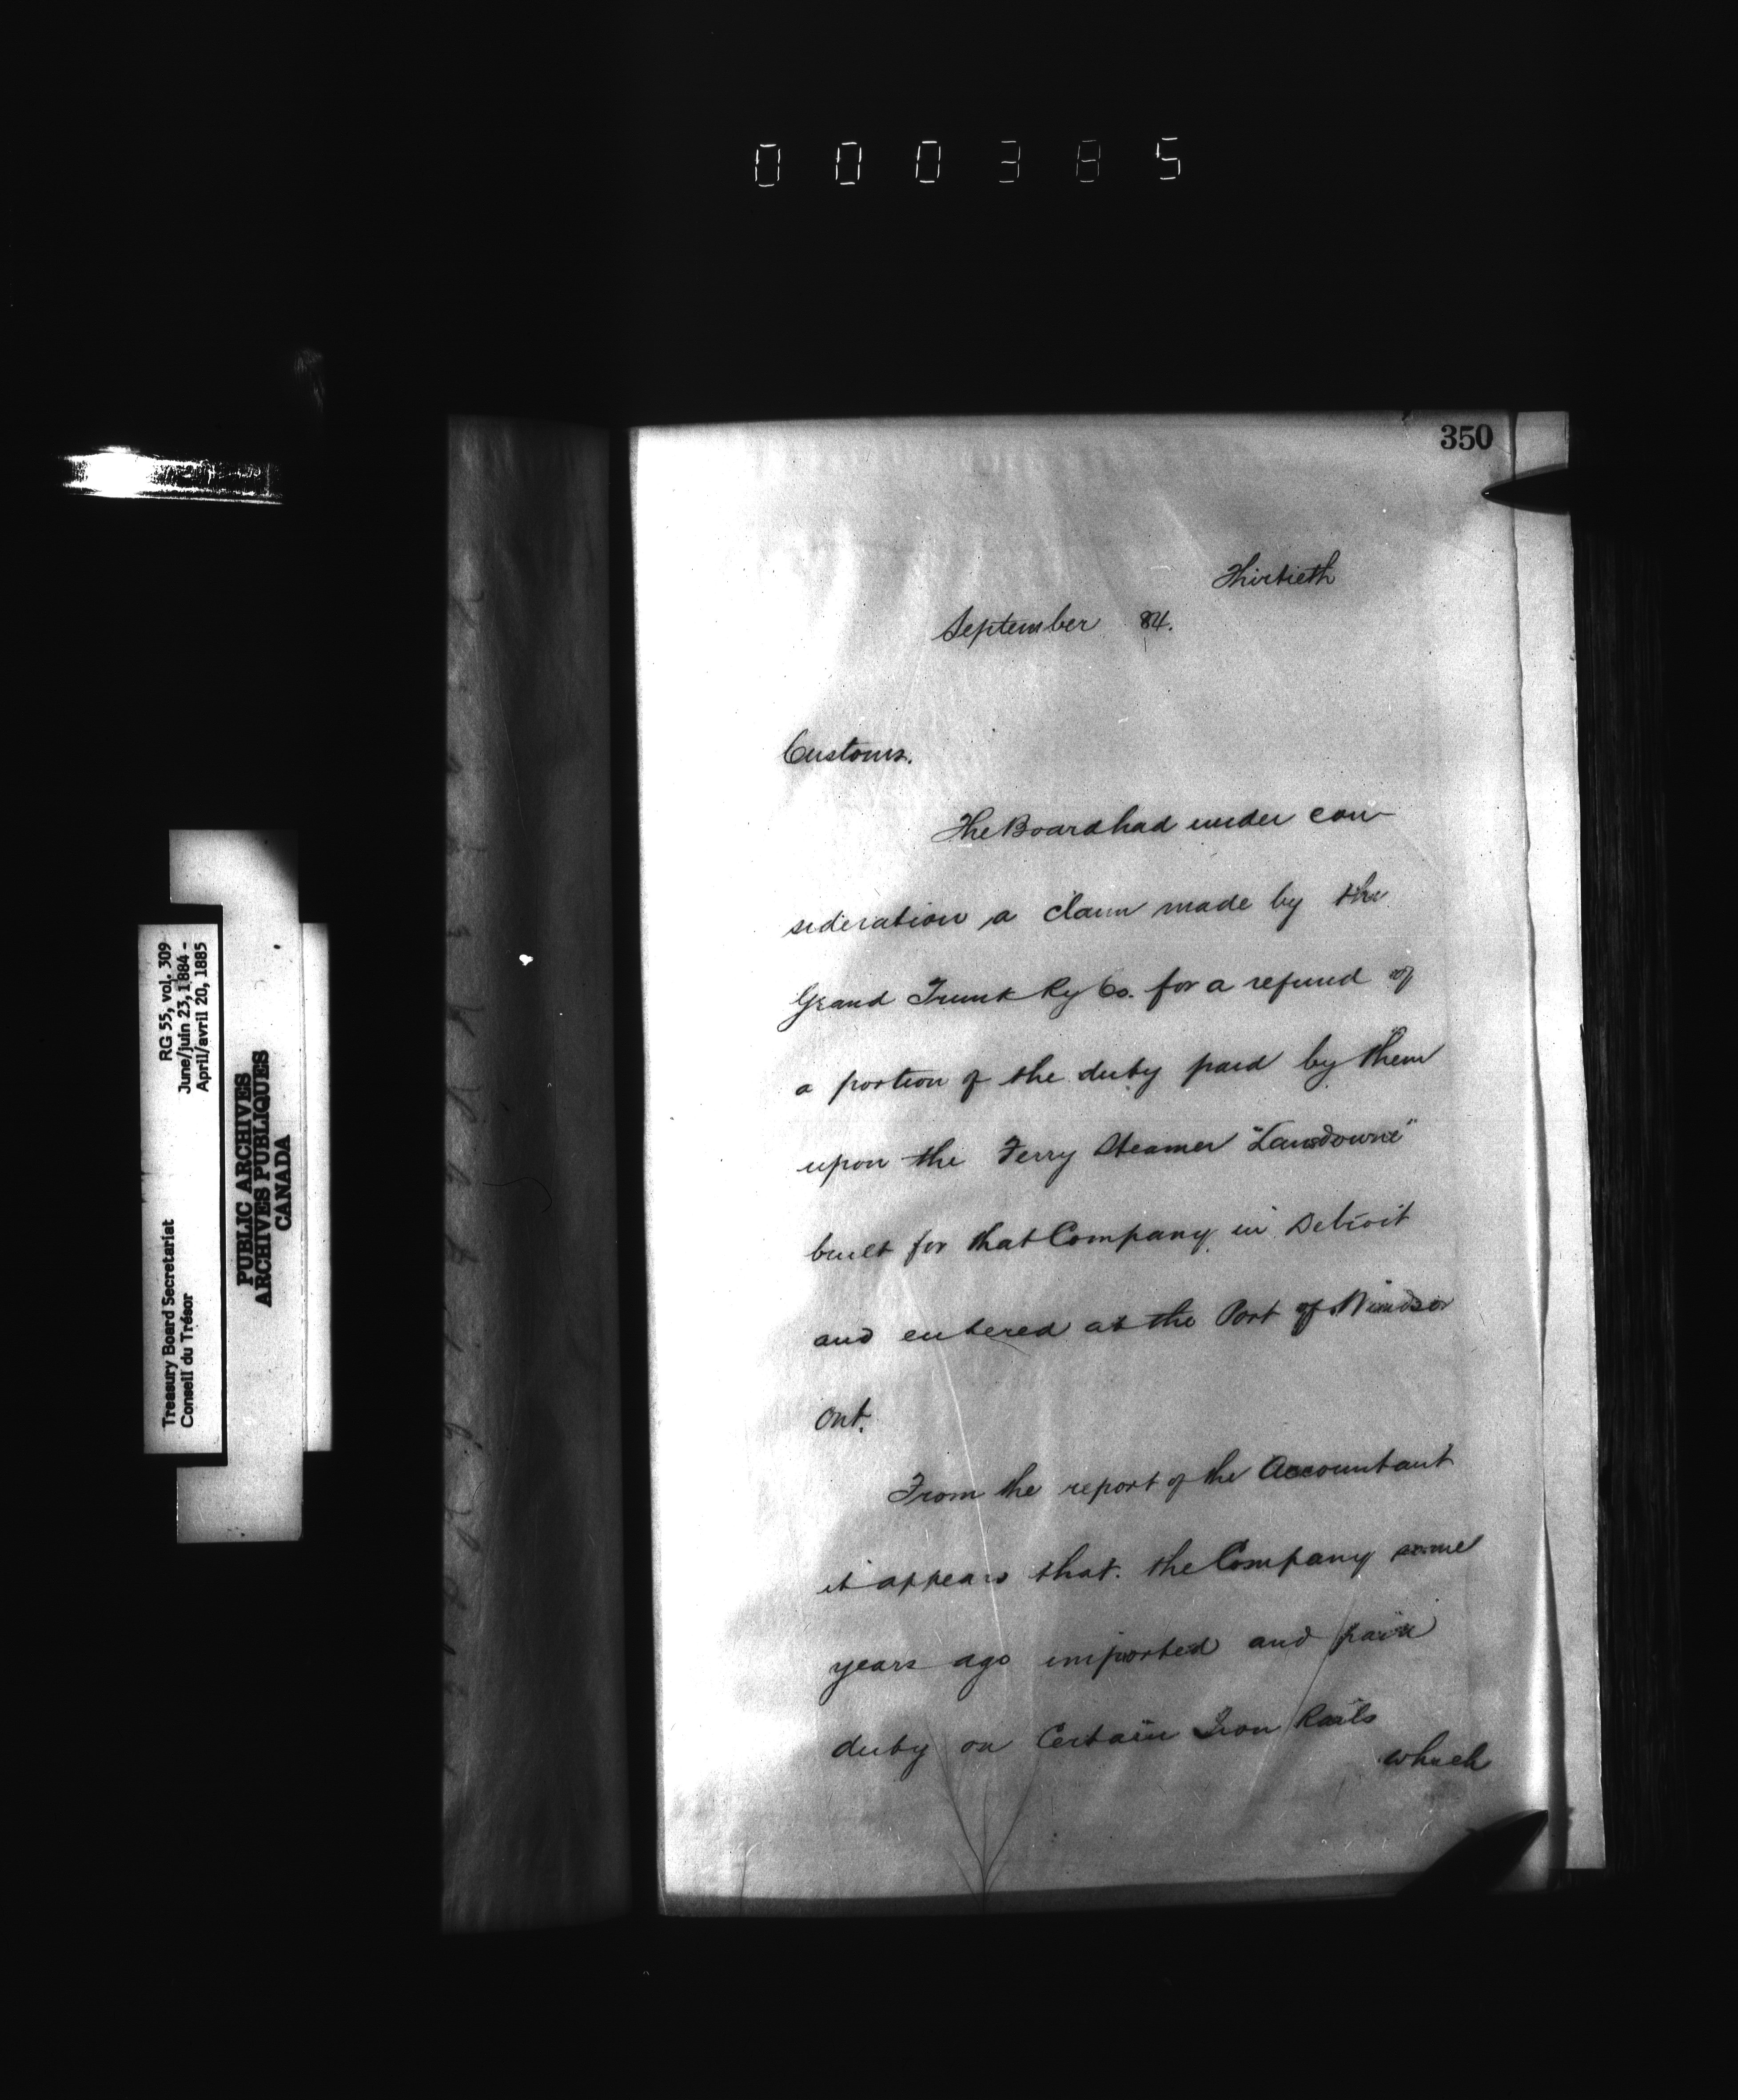 000385
350
Thirtieth
September 84.
Customs.
The Board had under con-
sideration a claim made by the
Grand Trunk Ry Co. for a refund of
a portion of the duty paid by them
upon the Ferry Steamer "Lansdowne"
built for that Company in Detroit
and entered at the Port of Windsor
Ont.
From the report of the Accountant
it appears that the Company some
years ago imported and paid
duty on Certain Iron Rails
which
RG 55, vol. 309
June/juin 23, 1884 -
April/avril 20, 1885
Treasury Board Secretariat
Conseil du Trésor
PUBLIC ARCHIVES
ARCHIVES PUBLIQUES
CANADA